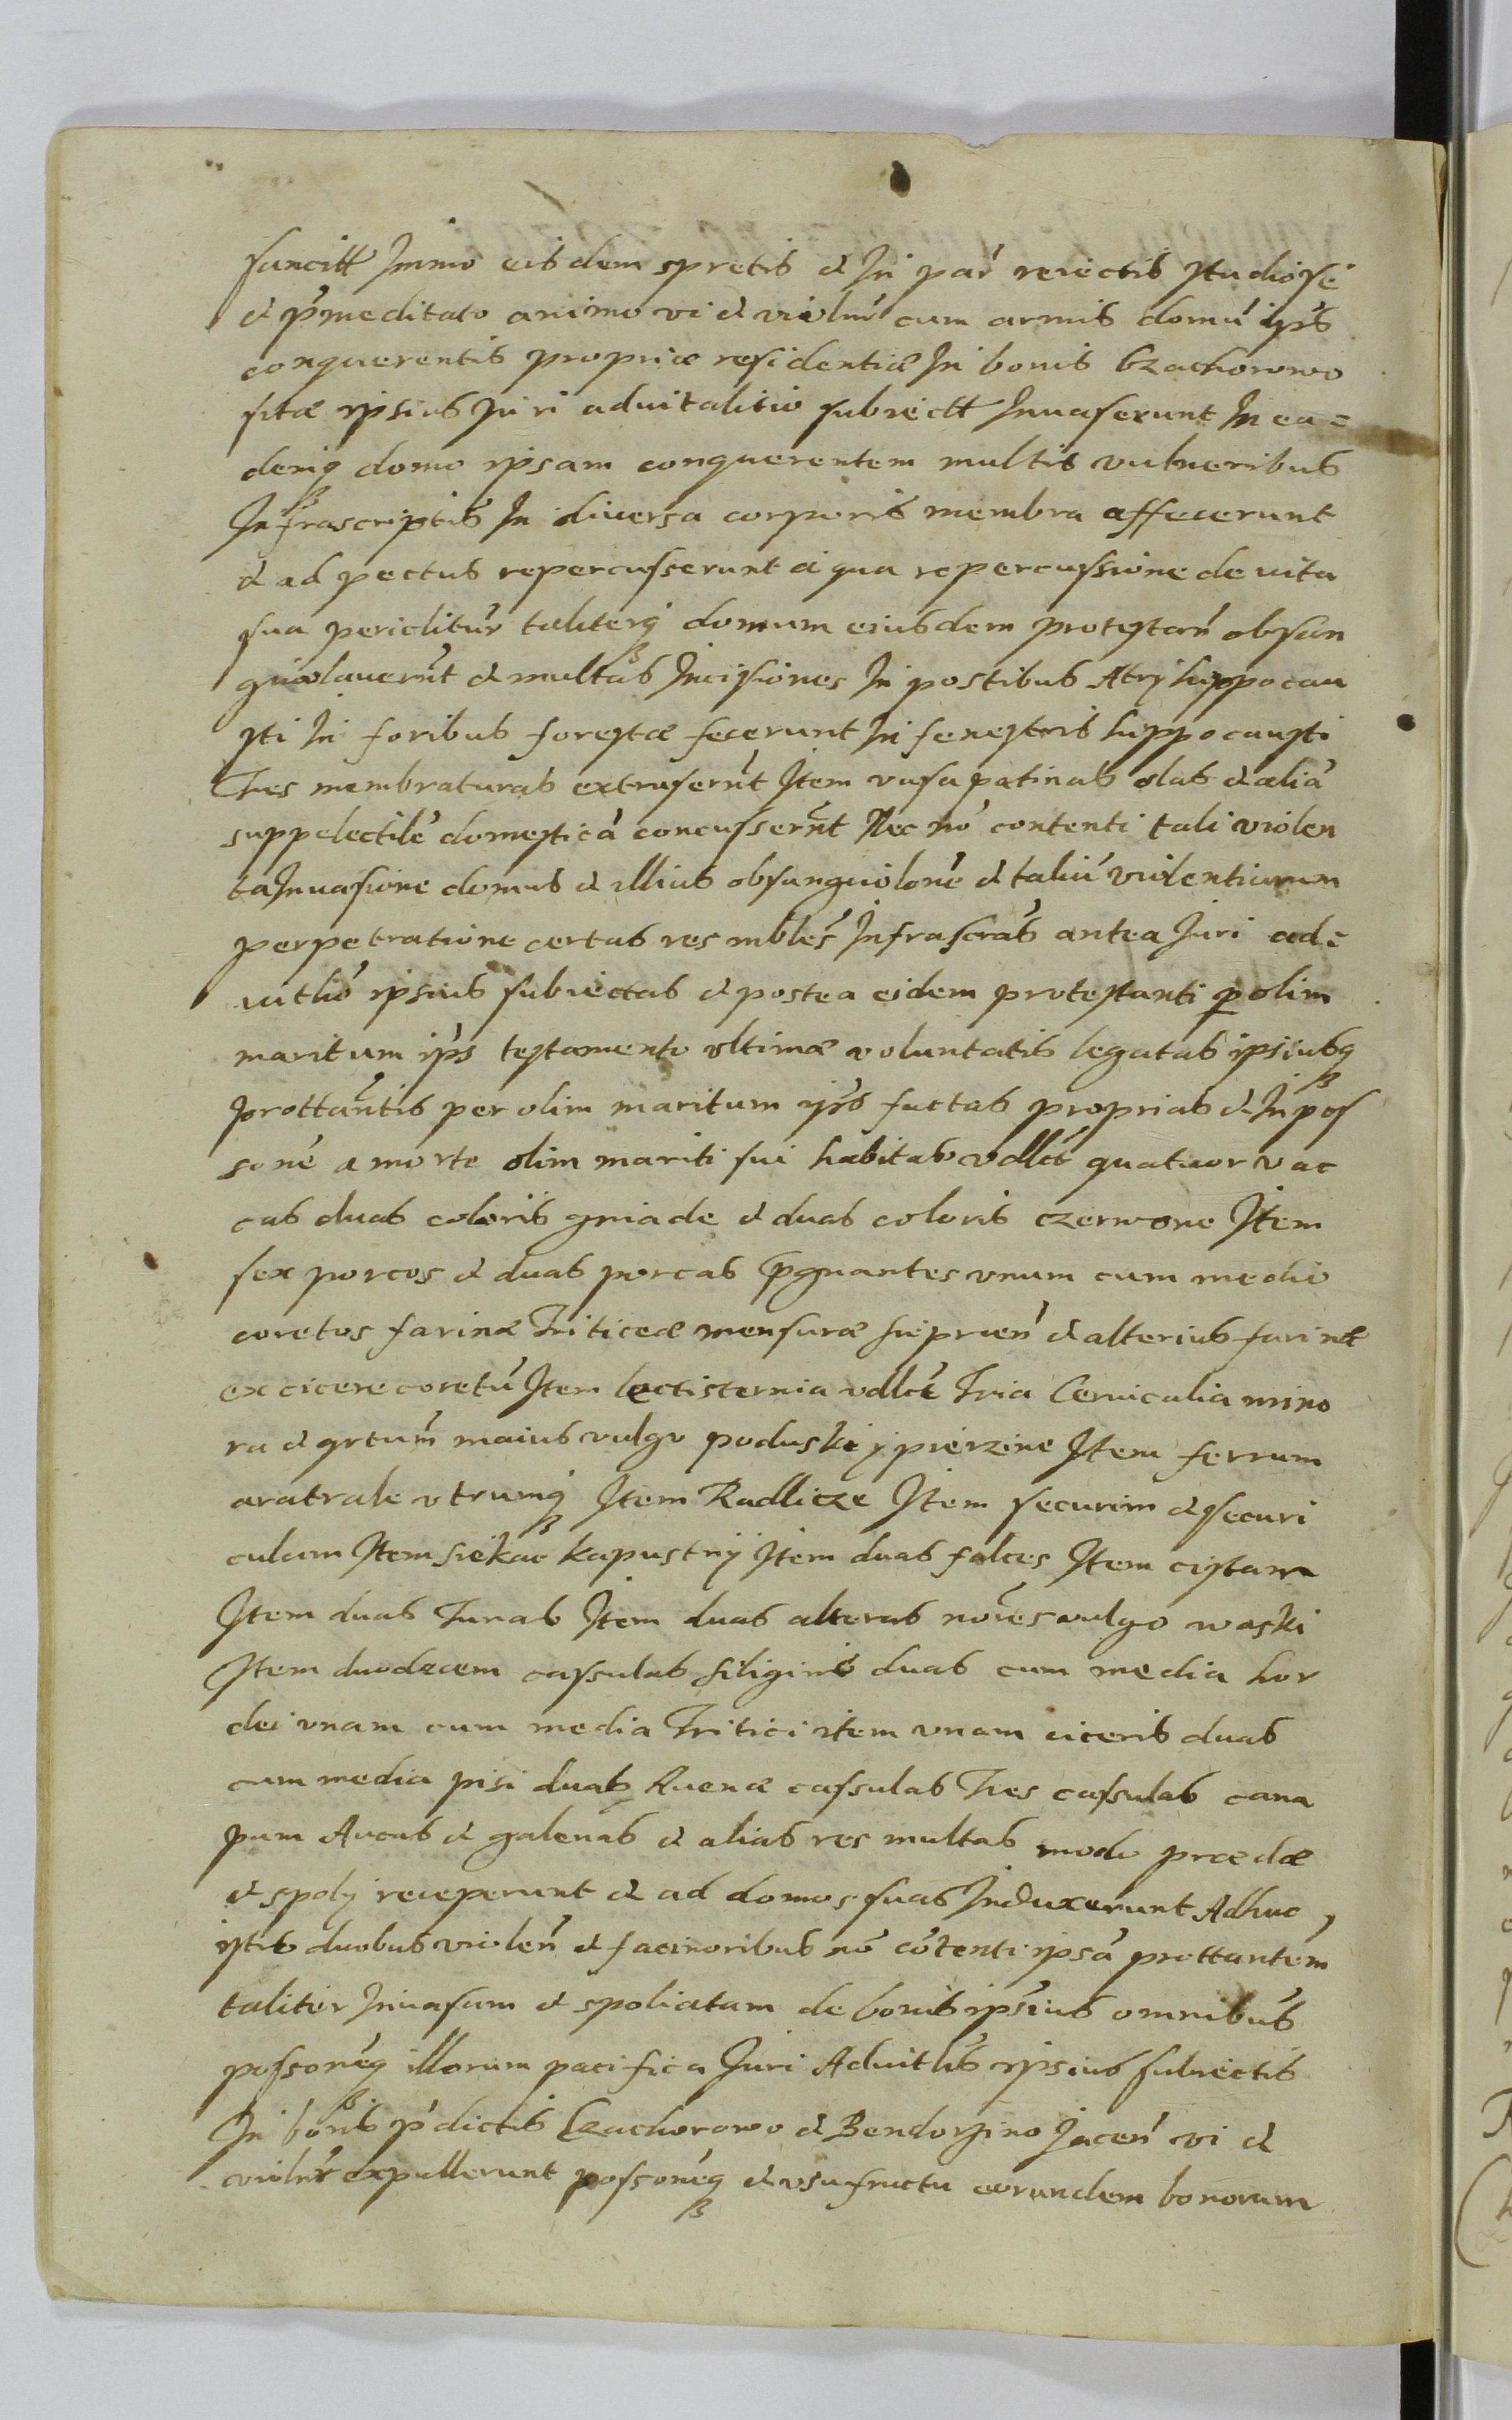 sancitt Immo eisdem spretis et In par reiectis studiose
et p'meditato animo vi et violnr cum armis domu' ip's
conquerentis propriæ residentiæ In bonis Czachorowo
sitæ ipsius Juri aduitalitio subiectt Inuaserunt In ea=
demq domo ipsam conquerentem multis vulneribus
Infrascriptis In diuersa corporis membra affecerunt
et ad pectus repercusserunt a qua repercussione de uita
sua periclitur taliterq domum eiusdem protestan' obsan
guiolauerut et multas Incisiones In postibus Atrij hyppocau
sti In foribus forestæ fecerunt In fenestris hyppocausti
Tres membraturas extruserut Item vasa patinas olas et alia'
suppelectile' domestica' concusserut Nec no' contenti tali violen
ta Inuasione domus et illius obsanguolone' et taliu' violentiarum
perpetratione certas res mbles' Infrascras' antea Juri ad=
uitlio' ipsius subiectas et postea eidem protestanti p olim
maritum ip's testamento vltimæ voluntatis legatas ipsiusq
prottantis per olim maritum ip's factas proprias et In pos
sone' a morte olim mariti sui habitas vdlct quatuor vac
cas duas coloris gniade et duas coloris czerwone Item
sex porcos et duas porcas pgnantes vnum cum medio
coretos farinæ Triticeæ mensuræ Srzpcen' et alterius farinæ
ex cicere coretu' Item lectisternia vdlct Tria Ceruicalia mino
ra et qrtum maius vulgo poduski y pierzine Item ferrum
aratrale vtrumq Item Radlicze Item securim et securi
culam Item siekac kapustnÿ Item duas falces Item cistam
Item duas Tunas Item duas alteras nores vulgo waski
Item duodecem cassulas siliginis duas cum media hor
dei vnam cum media Tritici item vnam ciceris duas
cum media pisi duas Auenæ cassulas Tres cassulas cana
pum Aucas et galenas et alias res multas modo prædæ
et spolÿ receperunt et ad domos suas Induxerunt Adhuc
istis duobus violen' et facinoribus no' co'tenti ipsa' prottantem
taliter Inuasam et spoliatam de bonis ipsius omnibus
possoneq illorum pacifica Juri Aduitlis ipsius subiectis
In bonis p'dictis Czachorowo et Bendorzino Jacen' vi et
violnr expullerunt possoneq et vsufructu eorundem bonorum